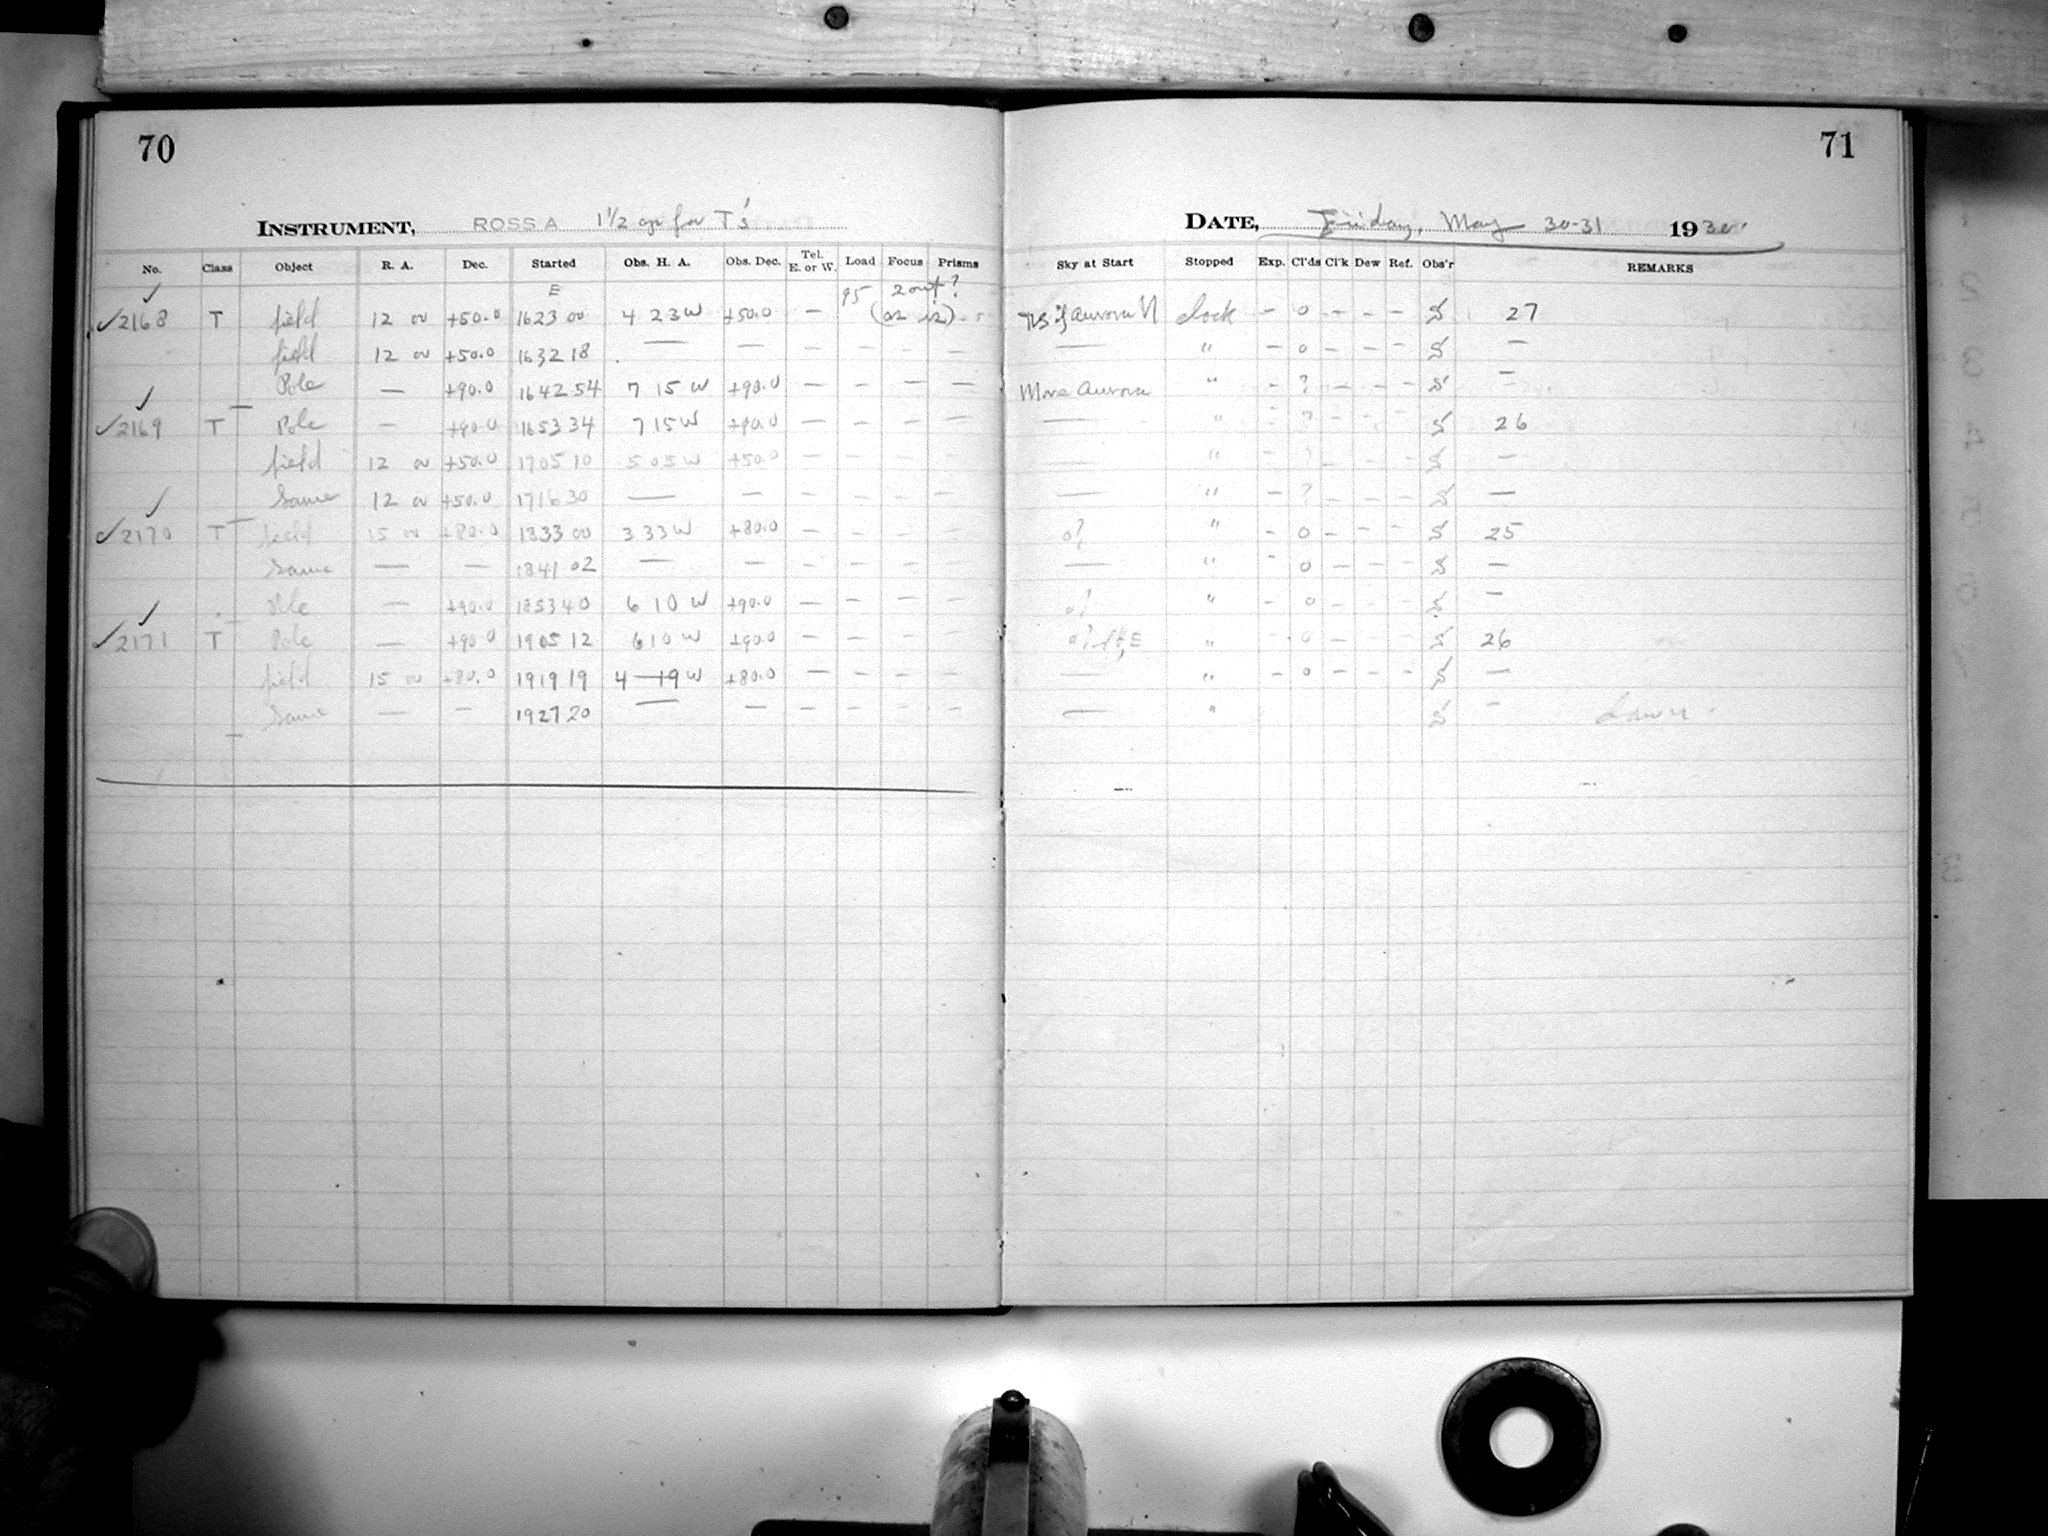 70
INSTRUMENT, ROSS A 1½ ap for T's
No. Class Object R. A. Dec. Started Obs. H. A. Obs. Dec. Tel. E. or W. Load Focus Prisms
E 95 2 out?
✓2168 T field 12 00 +50.0 16 23 00 4 23 W +50.0 — (or in)
field 12 00 +50.0 16 32 18 — — — — — —
Pole — +90.0 16 42 54 7 15 W +90.0 — — — —
✓2169 T Pole — +90.0 16 53 34 7 15 W +90.0 — — — —
field 12 00 +50.0 17 05 10 5 05 W +50.0 — — — —
Same 12 00 +50.0 17 16 30 — — — — — —
✓2170 T field 15 00 +80.0 18 33 00 3 33 W +80.0 — — — —
Same — — 18 41 02 — — — — — —
Pole — +90.0 18 53 40 6 10 W +90.0 — — — —
✓2171 T Pole — +90.0 19 05 12 6 10 W +90.0 — — — —
field 15 00 +80.0 19 19 19 4 19 W +80.0 — — — —
Same — — 19 27 20 — — — — — —
71
DATE, Friday, May 30-31 1930
Sky at Start Stopped Exp. Cl'ds Cl'k Dew Ref. Obs'r REMARKS
aurora N clock — 0 — — — S 27
— " — 0 — — — S —
More aurora " — ? — — — S —
— " — ? — — — S 26
— " — ? — — — S —
— " — ? — — — S —
0? " — 0 — — — S 25
— " — 0 — — — S —
0? " — 0 — — — S —
0? E " — 0 — — — S 26
— " — 0 — — — S —
— " S — Dawn.